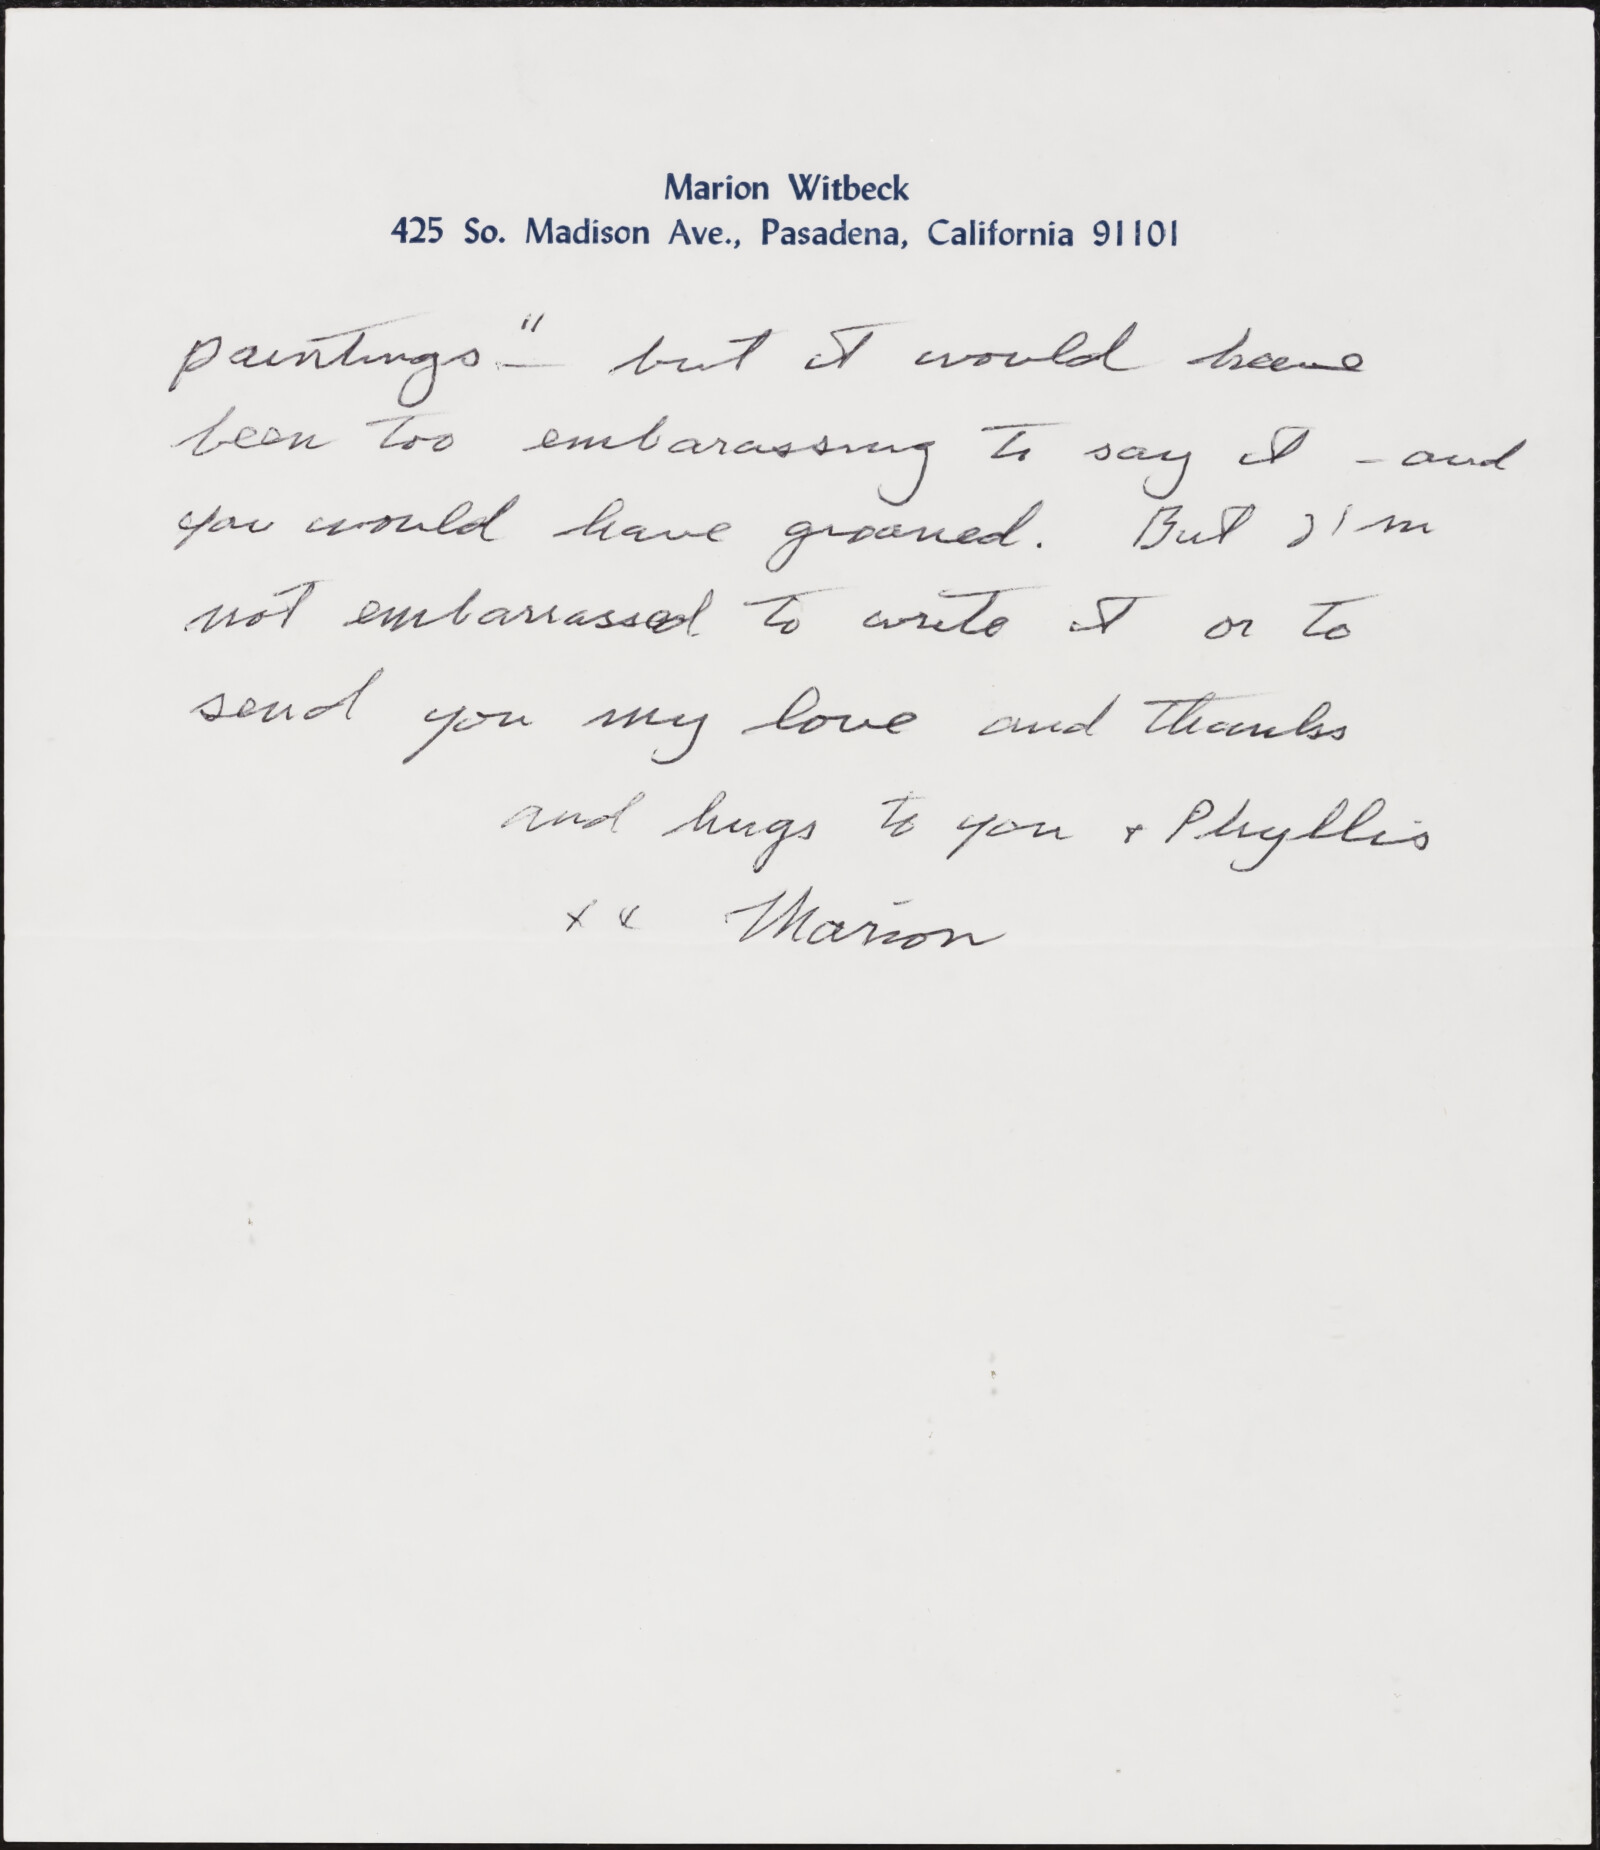 Marion Witbeck
425 So. Madison Ave., Pasadena, California 91101
paintings" — but it would have
been too embarassing to say it – and
you would have groaned. But I'm
not embarrassed to write it or to
send you my love and thanks
and hugs to you + Phyllis
x x Marion